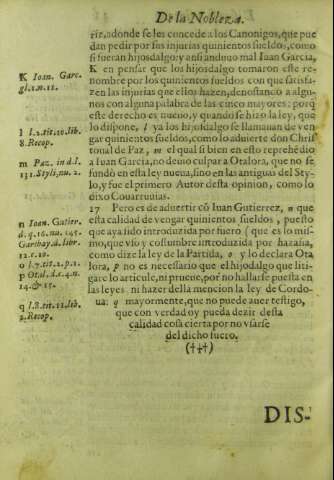 De la Nobleza.
riz, adonde se les concede a los Canonigos, que pue
dan pedir por sus injurias quinientos sueldos, como
si fueran hijosdalgo; y ansi anduuo mal Iuan Garcia,
K en pensar que los hijosdalgo tomaron este re-
nombre por los quinientos sueldos con que satisfa-
zen las injurias que ellos hazen, denostando a algu-
nos con alguna palabra de las cinco mayores: porq̃
este derecho es nueuo, y quando se hizo la ley, que
lo dispone, l ya los hijosdalgo se llamauan de ven
gar quinientos sueldos, como lo aduierte don Chris
toual de Paz, m el qual si bien en esto reprehēdiò
a Iuan Garcia, no deuio culpar a Otalora, que no se
fundò en esta ley nueua, sino en las antiguas del Sty-
lo, y fue el primero Autor desta opinion, como lo
dixo Couarruuias.
27 Pero es de aduertir cō Iuan Gutierrez, n que
esta calidad de vengar quinientos sueldos, puesto
que aya sido introduzida por fuero (que es lo mis-
mo, que vso y costumbre introduzida por hazaña,
como dize la ley de la Partida, o y lo declara Ota
lora, p no es necessario que el hijosdalgo que liti-
gare lo articule, ni prueue, por no hallarse puesta en
las leyes ni hazer della mencion la ley de Cordo-
ua: q mayormente, que no puede auer testigo,
que con verdad oy pueda dezir desta
calidad cosa cierta por no vsarse
del dicho fuero.
(†)
DIS-
K Ioan. Garc.
gl.1.n.11.
l l.2.tit.10.lib.
8.Recop.
m Paz, in d.l.
131.Styli, nu.2.
n Ioan. Gutierr.
d.q.16.nu.145.
Garibay.d.libr.
12.c.20.
o l.7.tit.2.p.1.
p Otal.d.c.4.n.
14.&15.
q l.8.tit.11.lib.
2.Recop.